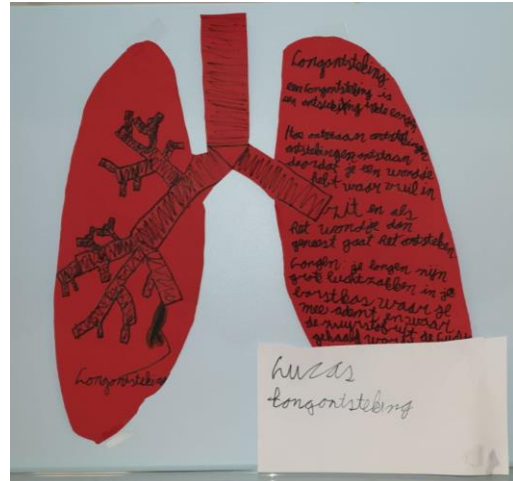 Longontsteking
een longontsteking is
een ontsteking in de longen
Hoe ontstaan ontstekingen
ontstekingen ontstaan
doordat je een wondje
hebt waar vuil in
zit en als
het wondje dan
geneest gaat het ontsteken
Longen: je longen zijn
grote luchtzakken in je
borstkas waar je
mee ademt en waar
de zuurstof uit de lucht
gehaald wordt
Longontsteking
Lucas
Longontsteking